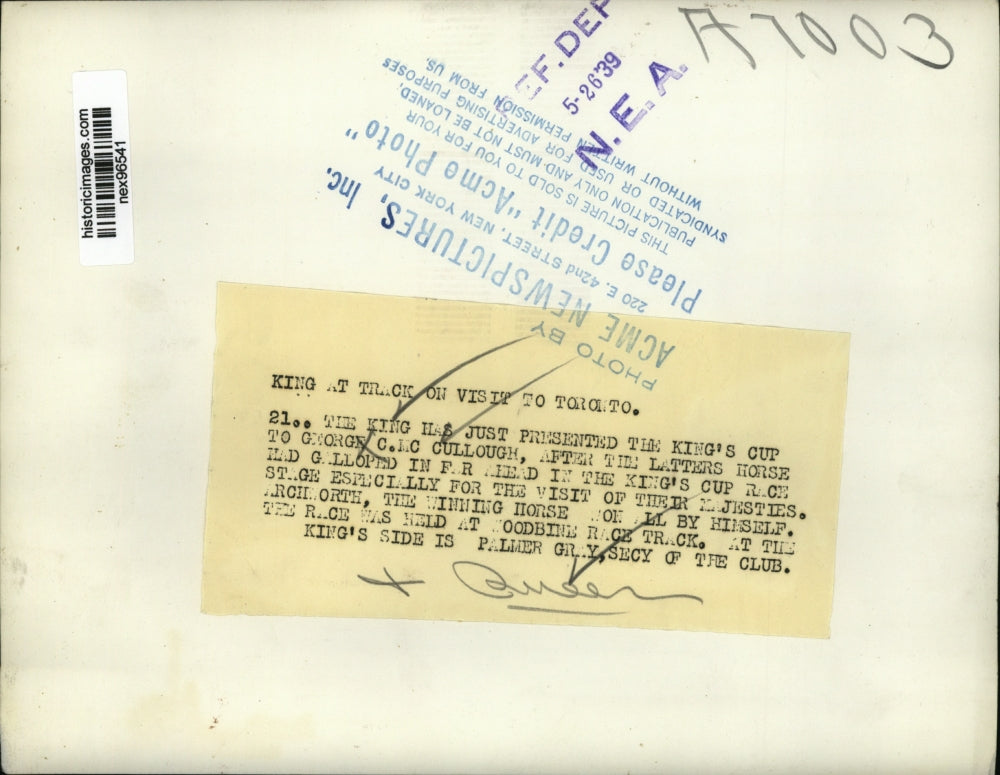 historicimages.com
nex96541
A7003
REF.DEPT
5-26'39
N.E.A.
PHOTO BY
ACME NEWSPICTURES, Inc.
220 E. 42nd STREET, NEW YORK CITY
Please Credit "Acme Photo"
THIS PICTURE IS SOLD TO YOU FOR YOUR
PUBLICATION ONLY AND MUST NOT BE LOANED,
SYNDICATED OR USED FOR ADVERTISING PURPOSES
WITHOUT WRITTEN PERMISSION FROM US.
KING AT TRACK ON VISIT TO TORONTO.
21.. THE KING HAS JUST PRESENTED THE KING'S CUP
TO GEORGE C.MC CULLOUGH, AFTER THE LATTERS HORSE
HAD GALLOPED IN FAR AHEAD IN THE KING'S CUP RACE
STAGE ESPECIALLY FOR THE VISIT OF THEIR MAJESTIES.
ARCHWORTH, THE WINNING HORSE WON ALL BY HIMSELF.
THE RACE WAS HELD AT WOODBINE RACE TRACK. AT THE
KING'S SIDE IS PALMER GRAY, SECY OF THE CLUB.
+ Queen